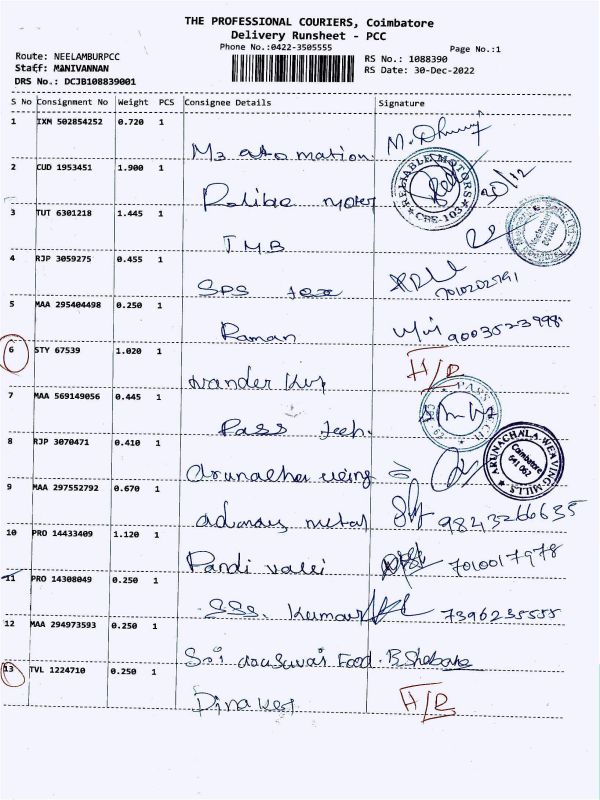 THE PROFESSIONAL COURIERS, Coimbatore
Delivery Runsheet - PCC
Phone No.:0422-3505555
Page No.:1
Route: NEELAMBURPCC
RS No.: 1088390
Staff: MANIVANNAN
RS Date: 30-Dec-2022
DRS No.: DCJB108839001
S No Consignment No Weight PCS Consignee Details Signature
1 IXM 502854252 0.720 1
M3 atomation
2 CUD 1953451 1.900 1
RELIABLE MOTORS CBE-103
30/12
3 TUT 6301218 1.445 1
T.M.B
4 RJP 3059275 0.455 1
SPS tex
5 MAA 295404498 0.250 1
Raman 9003523998
6 STY 67539 1.020 1
H/R
7 MAA 569149056 0.445 1
Pass tech.
8 RJP 3070471 0.410 1
ARUNACHALA WEAVING MILLS Coimbatore 641 062
9 MAA 297552792 0.670 1
9843266635
10 PRO 14433409 1.120 1
7010017978
11 PRO 14308049 0.250 1
SSS. Kumar 7396235555
12 MAA 294973593 0.250 1
Food.
13 TVL 1224710 0.250 1
H/R